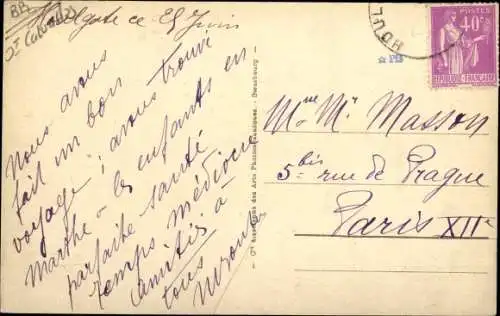 BB
ce 25 Juin
Nous avons
fait un bon
voyage ; avons trouvé
Marthe & les enfants en
parfaite santé
temps médiocre
Amitiés à
tous
Cie des Arts Photomécaniques - Strasbourg
HOUL
PB
40c
POSTES
REPUBLIQUE FRANÇAISE
Mme Mr Masson
5 bis rue de Prague
Paris XIIe